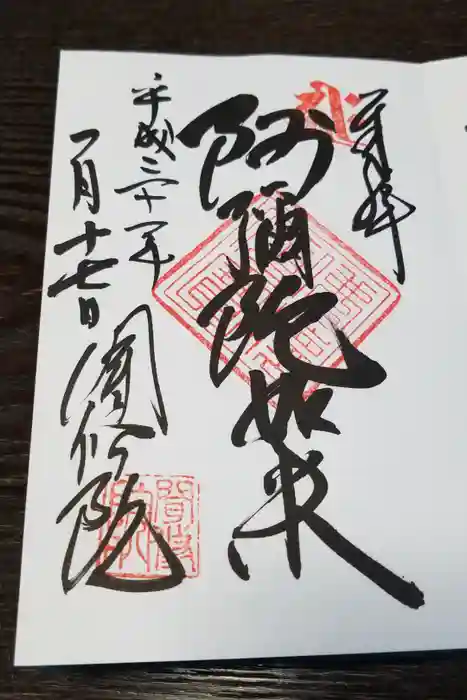 奉拝
阿彌陀如来
平成三十一年
一月十七日
聞修院